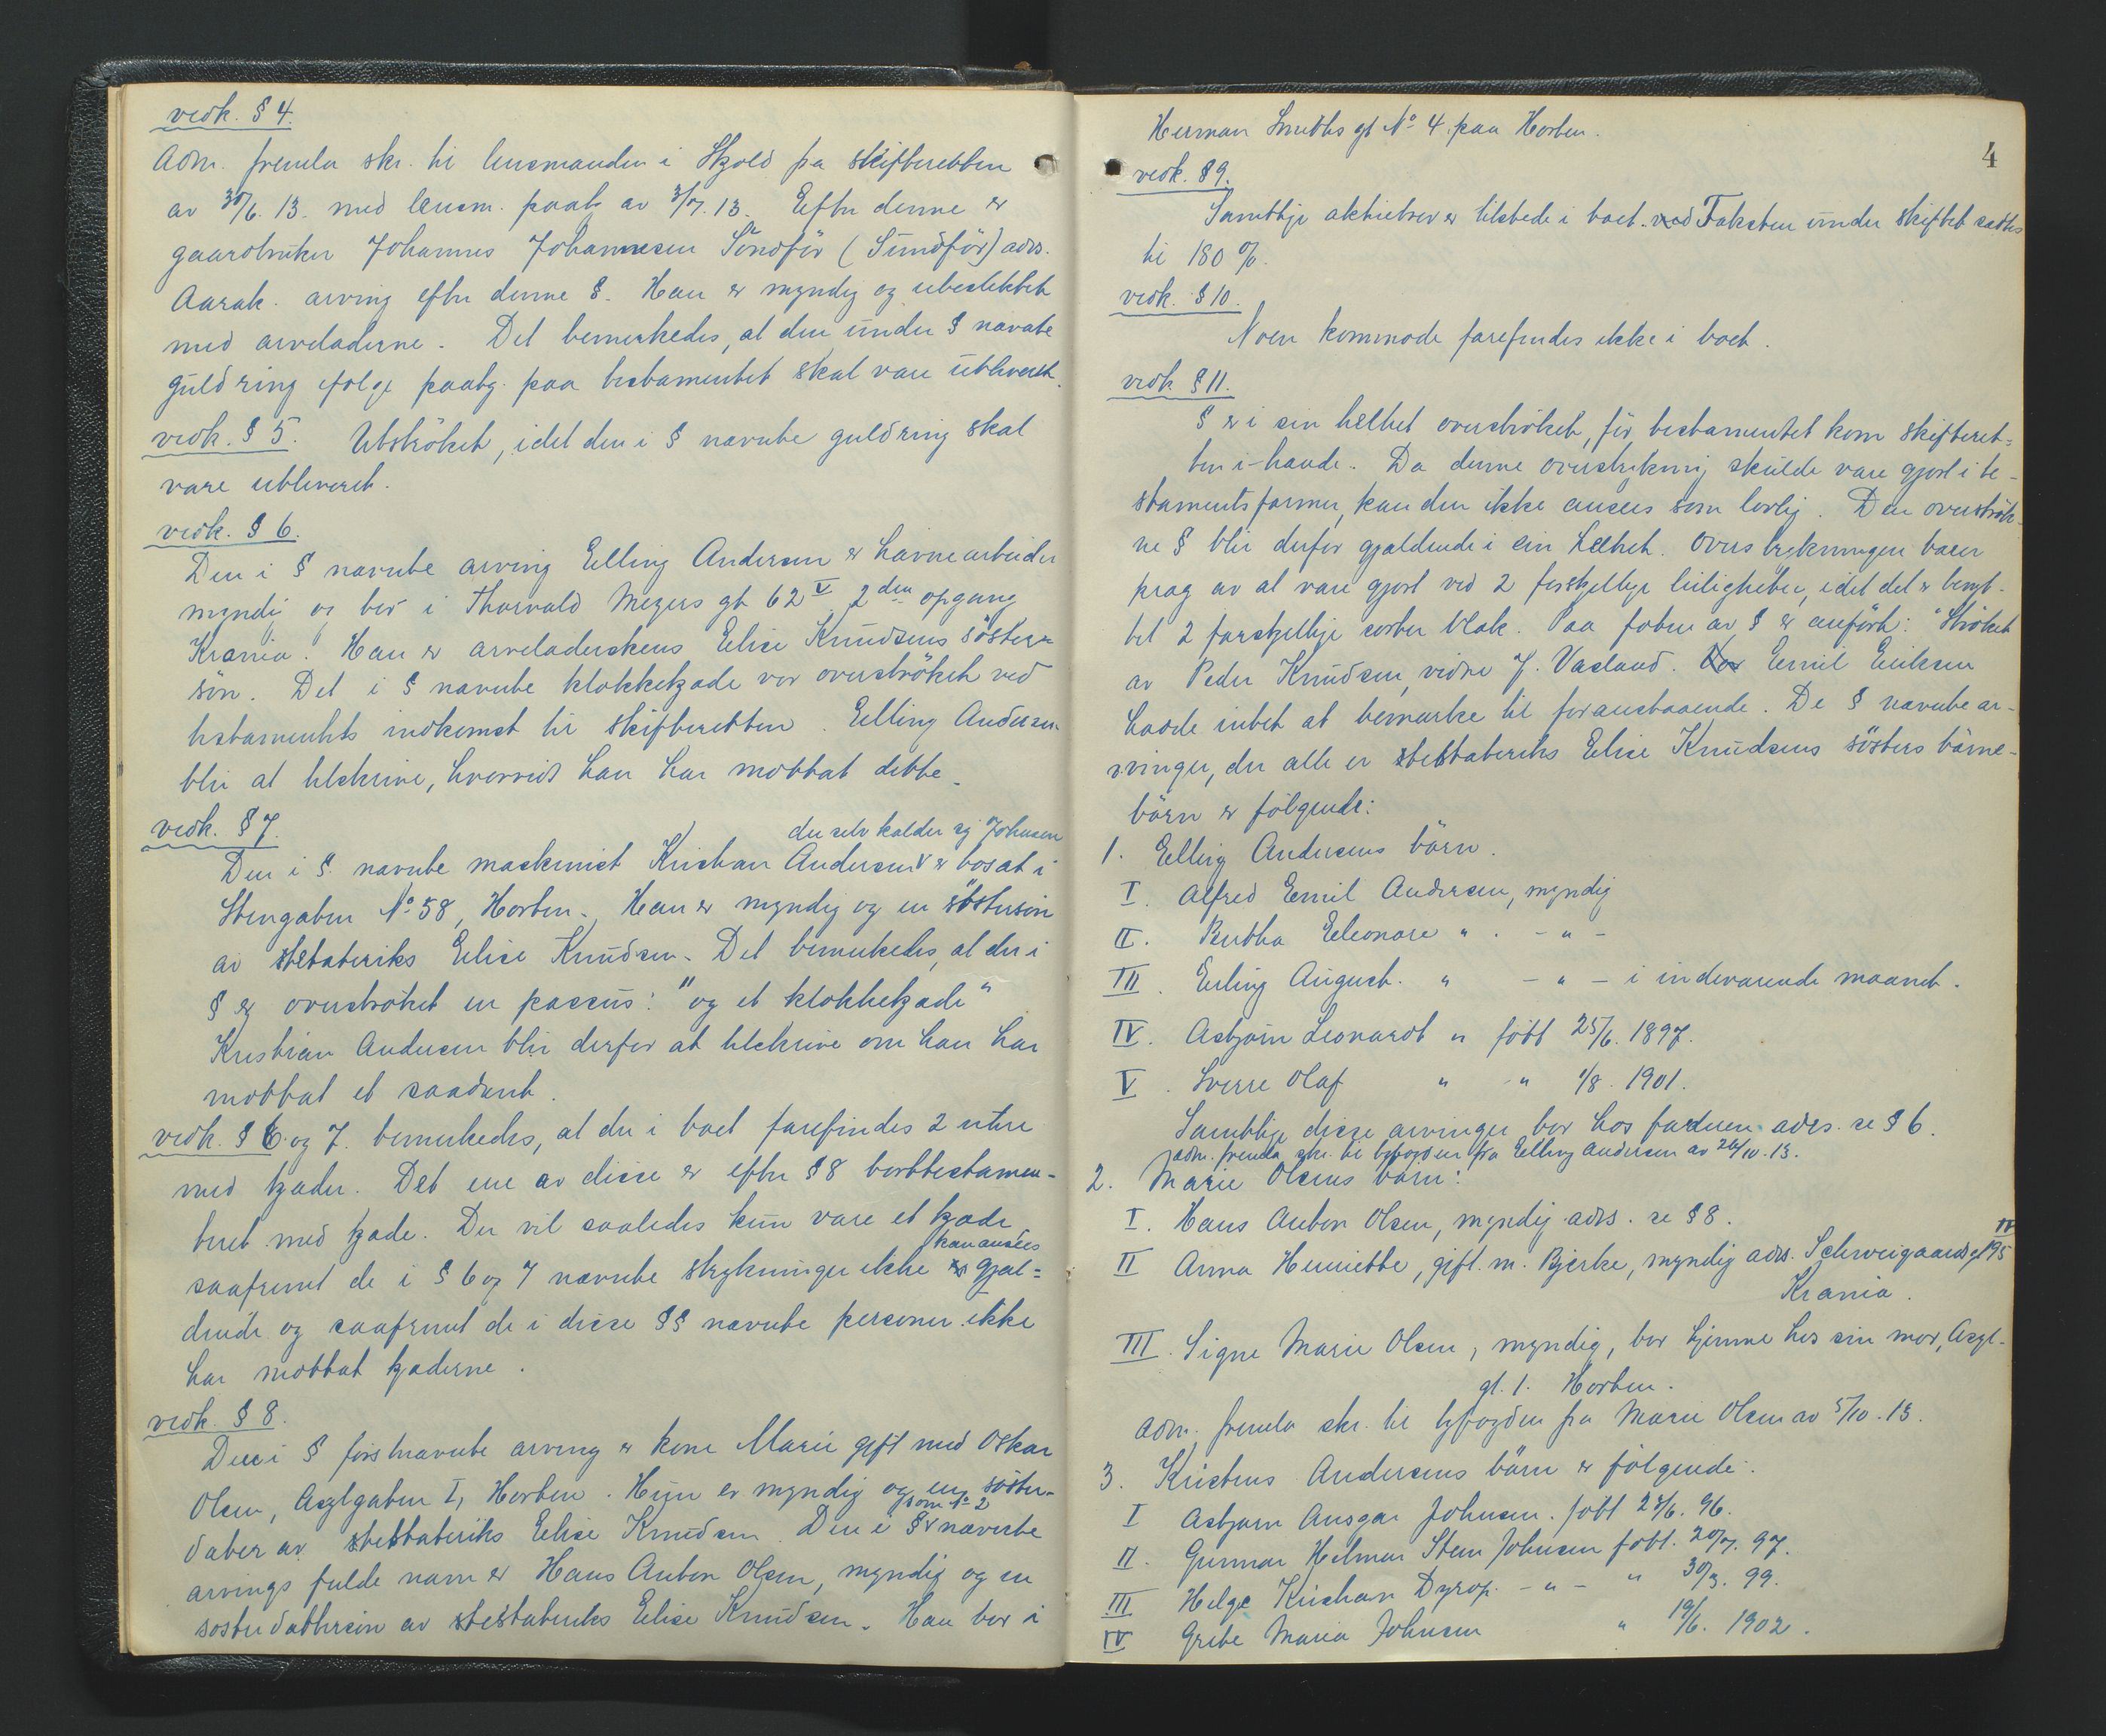 vedk. § 4.
Adm. fremla skr. til lensmanden i Skjold fra skifteretten
av 30/6. 13. med lensm. paat. av 3/7. 13. Efter denne er
gaardbruker Johannes Johannesen Söndför (Sundför) adrs.
Aarak. arving efter denne §. Han er myndig og ubeslektet
med arveladerne. Det bemerkedes, at den under § nævnte
guldring ifölge paatg. paa testamentet skal være utleveret.
vedk. § 5. Utströket, idet den i § nævnte guldring skal
være utleveret.
vedk. § 6.
Den i § nævnte arving Elling Andersen er havnearbeider
myndig og bor i Thorvald Meyers gt 62 V 2den opgang
Krania. Han er arveladerskens Elise Knudsens söster-
sön. Det i § nævnte klokkekjæde var overströket ved
testamentets indkomst til skifteretten. Elling Andersen
blir at tilskrive, hvorvidt han har mottat dette.
vedk. § 7.
der selv kalder sig Johnsen
Den i § nævnte maskinist Kristian Andersen v er bosat i
Stengaten No 58, Horten. Han er myndig og en söstersön
av testatrix Elise Knudsen. Det bemerkedes, at der i
§ er overströket en passus: "og et klokkekjæde"
Kristian Andersen blir derfor at tilskrive om han har
mottat et saadant.
vedk. § 6. og 7. bemerkedes, at der i boet forefindes 2 uhre
med kjæder. Det ene av disse er efter § 8 borttestamen-
teret med kjæde. Der vil saaledes kun være et kjæde
kan ansees
saafremt de i § 6 og 7 nævnte strykninger ikke gjæl=
dende og saafremt de i disse §§ nævnte personer ikke
har mottat kjæderne.
vedk. § 8.
Den i § förstnævnte arving er kone Marie gift med Oskar
Olsen, Asylgaten I, Horten. Hun er myndig og en söster-
som No 2
datter av testatrix Elise Knudsen. Den i § v nævnte
arvings fulde navn er Hans Anton Olsen, myndig og en
sösterdattersön av testatrix Elise Knudsen. Han bor i
Herman Smiths gt No 4 paa Horten.
4
vedk. § 9.
Samtlige aktiebrev er tilstede i boet. ved Taksten under skiftet sattes
til 180 %.
vedk. § 10.
Noen kommode forefindes ikke i boet.
vedk § 11.
§ er i sin helhet overströket, för testamentet kom skifteret=
ten i hænde. Da denne overstrykning skulde være gjort i te-
stamentsformer, kan den ikke ansees som lovlig. Den overströk-
ne § blir derfor gjældende i sin helhet. Overstrykningen bærer
præg av at være gjort ved 2 forskjellige leiligheter, idet det er benyt-
tet 2 forskjellige sorter blæk. Paa foten av § er anfört: "Ströket
av Peder Knudsen, vidne J. Vasland. Emil Eriksen
hadde intet at bemerke til foranstaaende. De § nævnte ar-
vinger, der alle er testatrix Elise Knudsens sösters barne-
börn er fölgende:
1. Elling Andersens börn.
I. Alfred Emil Andersen, myndig
II. Bertha Eleonore " . - " -
III. Erling August. " - " - i indeværende maanet.
IV. Asbjörn Leonardt " född 25/6. 1897.
V. Sverre Olaf " " 1/8. 1901.
Samtlige disse arvinger bor hos faderen adrs. se § 6.
Adm. fremla skr. til byfogden fra Elling Andersen av 26/10. 13.
2. Marie Olsens börn:
I. Hans Anton Olsen, myndig adrs. se § 8.
II Anna Henriette, gift. m. Bjerke, myndig adrs. Schweigaardsgt 95 IV
Krania.
III. Signe Marie Olsen, myndig, bor hjemme hos sin mor, Asyl-
gt. 1. Horten.
Adm. fremla skr. til byfogden fra Marie Olsen av 5/10. 13.
3. Kristens Andersens börn er fölgende:
I Asbjörn Ansgar Johnsen. född 28/6. 96.
II. Gunnar Helmer Steen Johnsen född. 20/7. 97.
III Helge Kristian Dyrop. - " - " 30/3. 99.
IV Grete Maria Johnsen " 19/6. 1902.